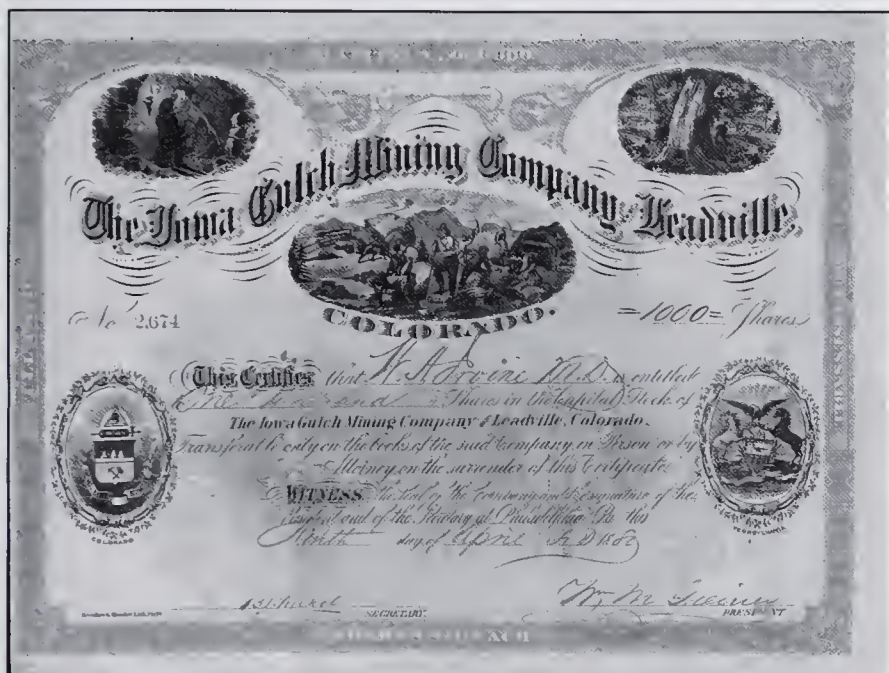 The Iowa Gulch Mining Company, Leadville,
COLORADO.
No 2,674 =1000= Shares
This Certifies that W. A. Irvine M.D. is entitled
Shares in the Capital Stock of
The Iowa Gulch Mining Company of Leadville, Colorado.
Transferable only on the books of the said Company in Person or by
Attorney on the surrender of this Certificate
WITNESS the Seal of the Company and the signature of the
President and of the Secretary at Philadelphia Pa this
day of April A D 188
COLORADO
PENNSYLVANIA
SECRETARY
Wm. M. PRESIDENT